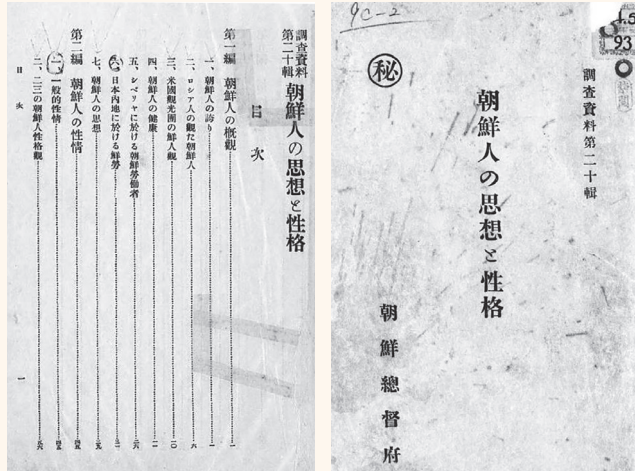 調査資料
第二十輯
朝鮮人の思想と性格
目次
第一編 朝鮮人の概觀
一、朝鮮人の誇り
二、ロシア人の觀た朝鮮人
三、米國觀光團の鮮人觀
四、朝鮮人の健康
五、シベリヤに於ける朝鮮勞働者
六、日本内地に於ける鮮勞
七、朝鮮人の思想
第二編 朝鮮人の性情
一、一般的性情
二、二三の朝鮮人性格觀
目次
一
9C-2
秘
調査資料第二十輯
朝鮮人の思想と性格
朝鮮總督府